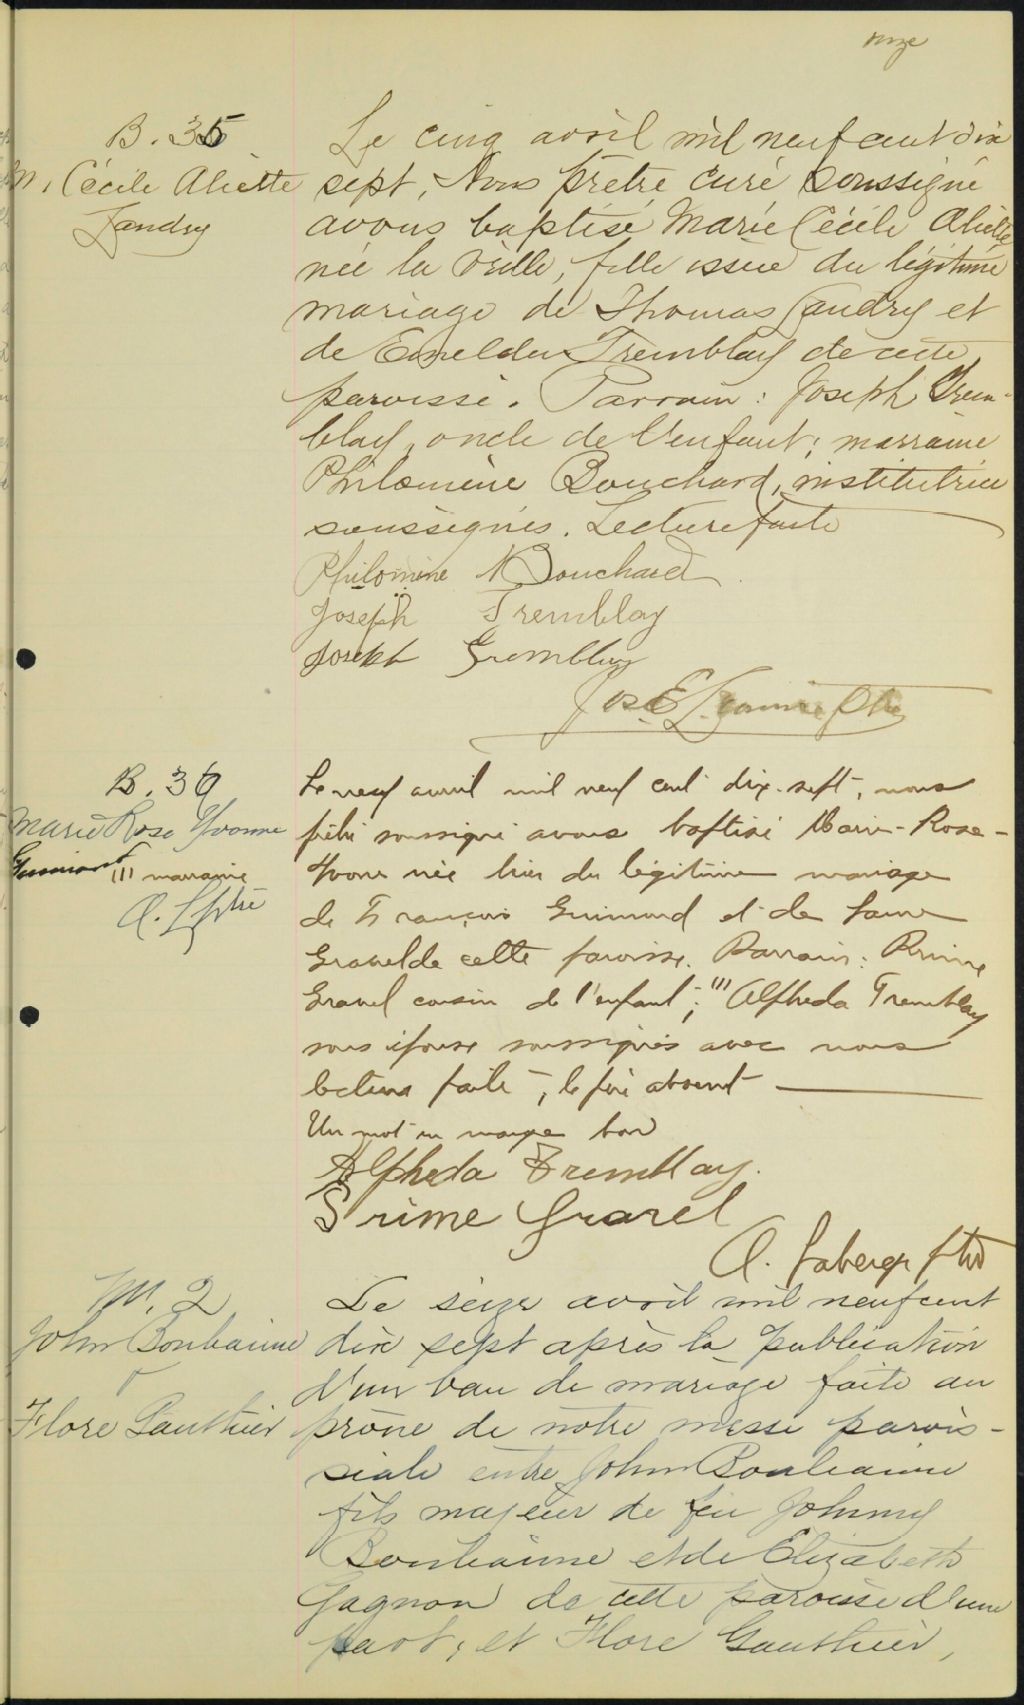 onze
B. 35
M. Cécile Aliette
Landry
Le cinq avril mil neuf cent dix
sept, Nous prêtre curé soussigné
avons baptisé Marie Cécile Aliette
née la veille, fille issue du légitime
mariage de Thomas Landry et
de Emelda Tremblay de cette
paroisse. Parrain : Joseph Trem-
blay, oncle de l'enfant ; marraine
Philomène Bouchard, institutrice
soussignés. Lecture faite
Philomène Bouchard
Joseph Tremblay
Joseph Tremblay
Jos. E. Ptre
B. 36
Marie Rose Yvonne
Guimond
/// marraine
A. L. Ptre
Le neuf avril mil neuf cent dix-sept, nous
prêtre soussigné avons baptisé Marie-Rose-
Yvonne née hier du légitime mariage
de François Guimond et de Laura
Gravel de cette paroisse. Parrain : Prime
Gravel cousin de l'enfant ; /// Alfheda Tremblay
son épouse soussignés avec nous
lecture faite, le père absent
Un mot en marge bon
Alpheda Tremblay.
Prime Gravel
A. Laberge Ptre
M. 2
John Boulianne
&
Flore Gauthier
Le seize avril mil neuf cent
dix sept après la publication
d'un ban de mariage faite au
prône de notre messe parois-
siale entre John Boulianne
fils majeur de feu Johnny
Boulianne et de Elizabeth
Gagnon de cette paroisse d'une
part, et Flore Gauthier,